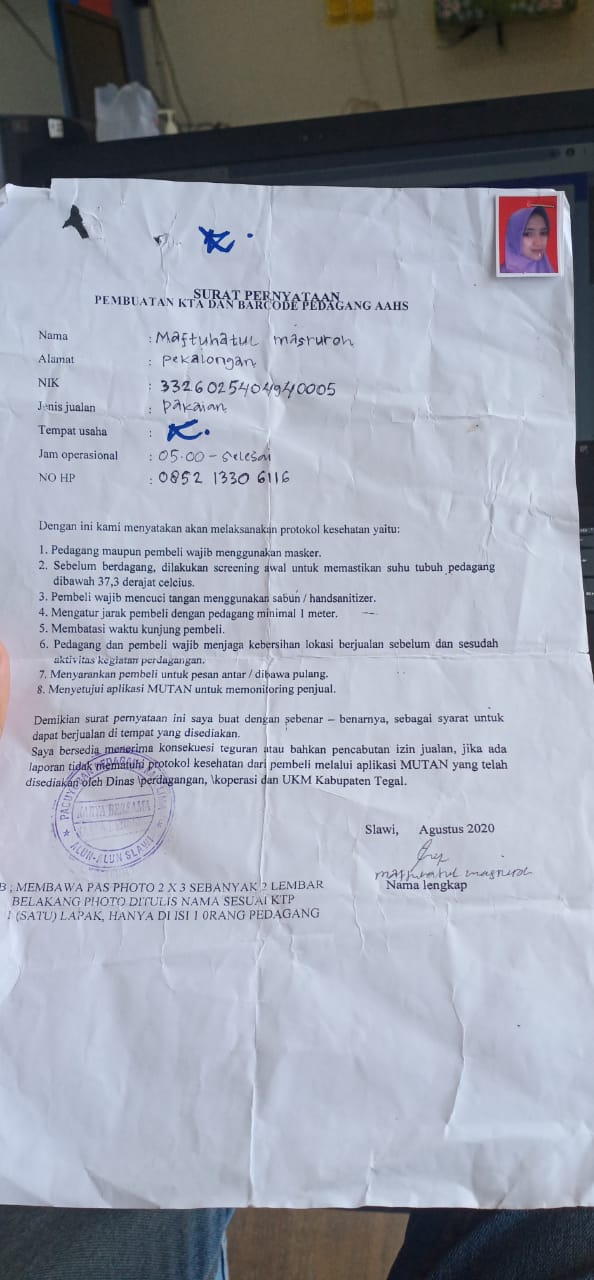 SURAT PERNYATAAN
PEMBUATAN KTA DAN BARCODE PEDAGANG AAHS
Nama : Maftuhatul masruroh
Alamat : pekalongan
NIK : 3326025404940005
Jenis jualan : pakaian
Tempat usaha : K.
Jam operasional : 05.00 - selesai
NO HP : 0852 1330 6116
Dengan ini kami menyatakan akan melaksanakan protokol kesehatan yaitu:
1. Pedagang maupun pembeli wajib menggunakan masker.
2. Sebelum berdagang, dilakukan screening awal untuk memastikan suhu tubuh pedagang
dibawah 37,3 derajat celcius.
3. Pembeli wajib mencuci tangan menggunakan sabun / handsanitizer.
4. Mengatur jarak pembeli dengan pedagang minimal 1 meter.
5. Membatasi waktu kunjung pembeli.
6. Pedagang dan pembeli wajib menjaga kebersihan lokasi berjualan sebelum dan sesudah
aktivitas kegiatan perdagangan.
7. Menyarankan pembeli untuk pesan antar / dibawa pulang.
8. Menyetujui aplikasi MUTAN untuk memonitoring penjual.
Demikian surat pernyataan ini saya buat dengan sebenar – benarnya, sebagai syarat untuk
dapat berjualan di tempat yang disediakan.
Saya bersedia menerima konsekuesi teguran atau bahkan pencabutan izin jualan, jika ada
laporan tidak mematuhi protokol kesehatan dari pembeli melalui aplikasi MUTAN yang telah
disediakan oleh Dinas \perdagangan, \koperasi dan UKM Kabupaten Tegal.
KARYA BERSAMA
ALUN-ALUN SLAWI
Slawi, Agustus 2020
maftuhatul masruroh
Nama lengkap
B ; MEMBAWA PAS PHOTO 2 X 3 SEBANYAK 2 LEMBAR
BELAKANG PHOTO DITULIS NAMA SESUAI KTP
1 (SATU) LAPAK, HANYA DI ISI 1 0RANG PEDAGANG